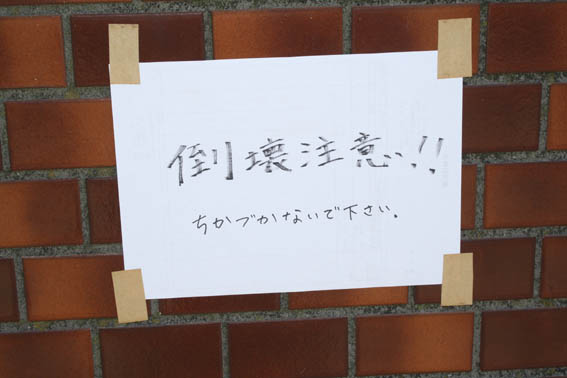 倒壊注意!!
ちかづかないで下さい。